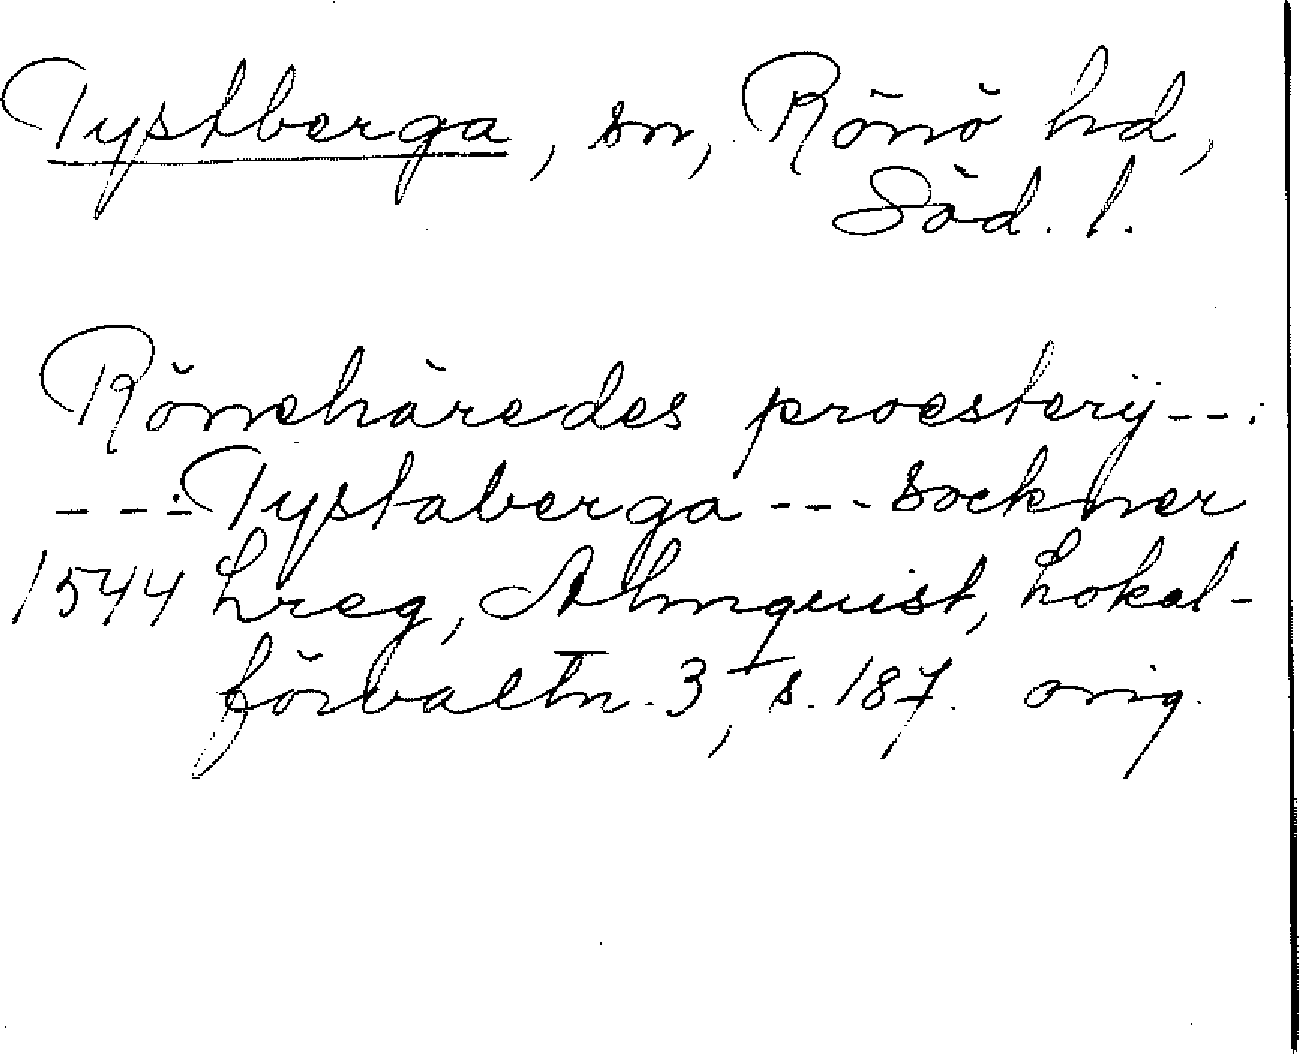 Tystberga, sn, Rönö hd,
Söd. l.
Rönehäredes proesterij--.
---Tystaberga --- Sockner
1544 Lreg, Almquist, Lokal-
förvaltn. 3, s. 187. orig.